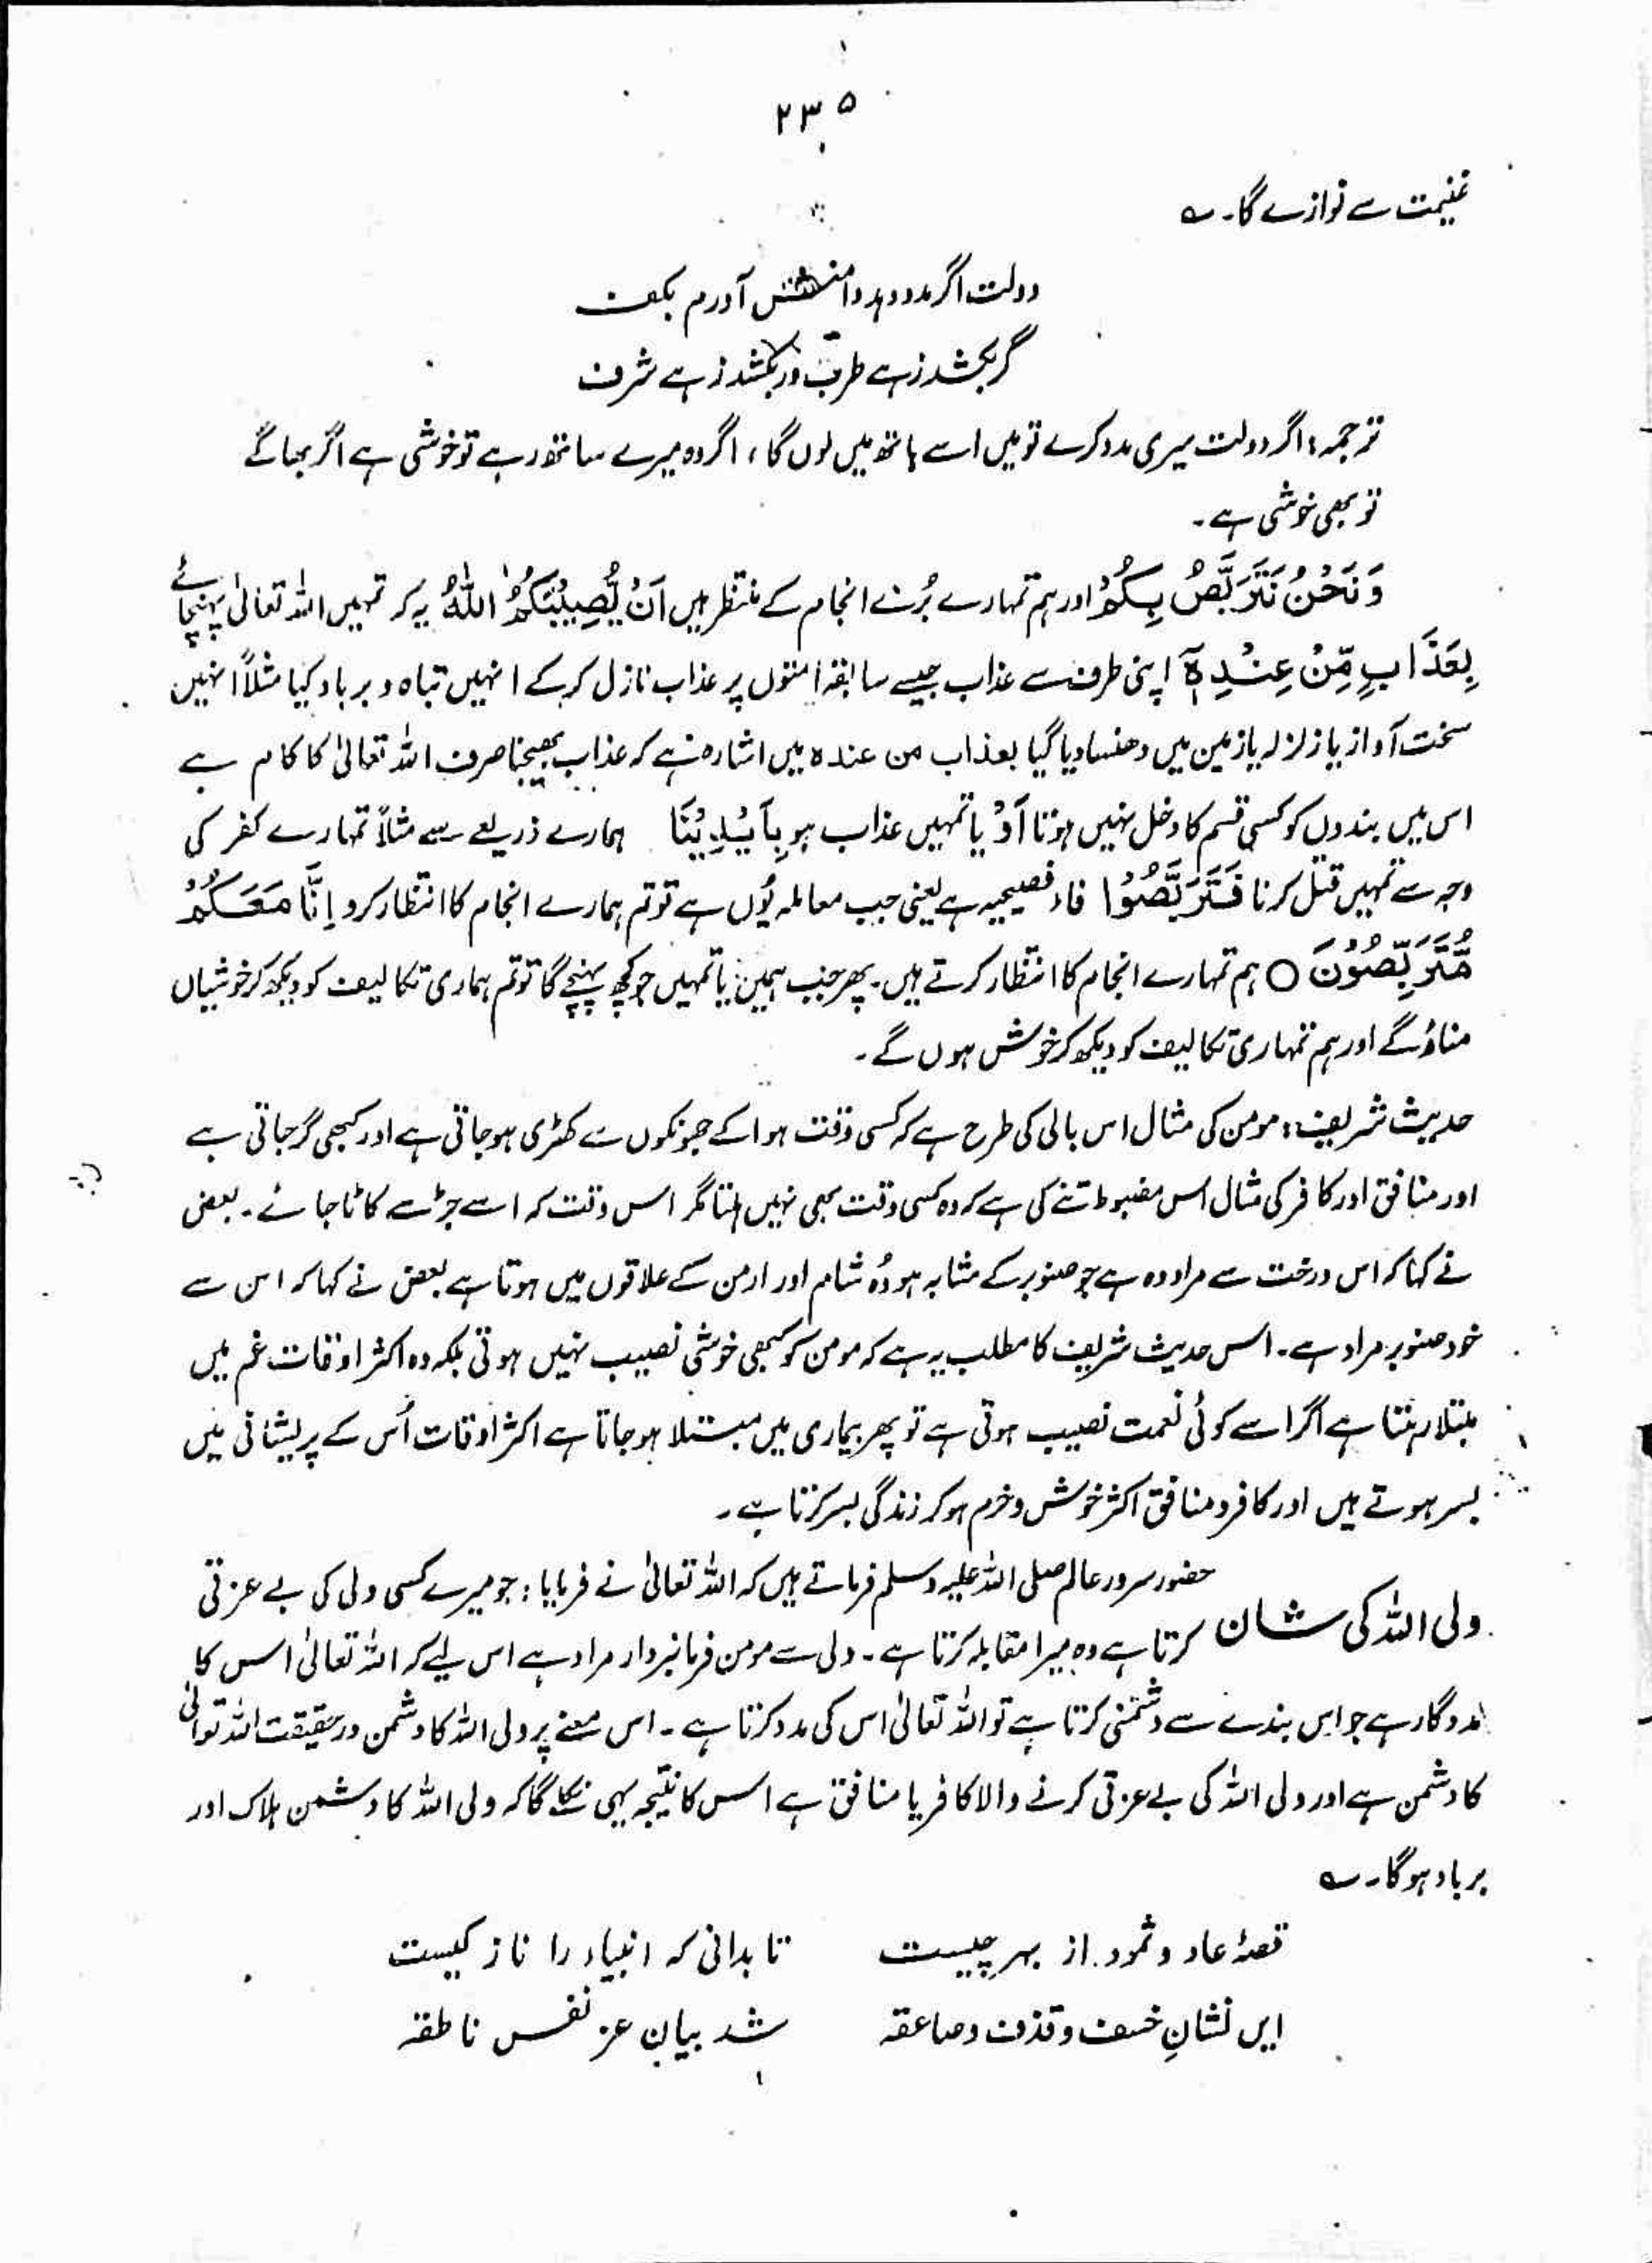 ۲۳۵
غنیمت سے نوازے گا۔ ؎
دولت اگر مدد دہد دامنش آورم بکف
گر بکشد زہے طرب ور بکشد زہے شرف
ترجمہ: اگر دولت میری مدد کرے تو میں اسے ہاتھ میں لوں گا، اگر وہ میرے ساتھ رہے تو خوشی ہے اگر بھاگے
تو بھی خوشی ہے۔
وَنَحْنُ نَتَرَبَّصُ بِكُمْ اور ہم تمہارے بُرے انجام کے منتظر ہیں اَنْ يُّصِيْبَكُمُ اللّٰهُ یہ کہ تمہیں اللہ تعالیٰ پہنچائے
بِعَذَابٍ مِّنْ عِنْدِهٖٓ اپنی طرف سے عذاب جیسے سابقہ امتوں پر عذاب نازل کرکے انہیں تباہ و برباد کیا مثلاً انہیں
سخت آواز یا زلزلہ یا زمین میں دھنسا دیا گیا بعذاب من عندہ میں اشارہ ہے کہ عذاب بھیجنا صرف اللہ تعالیٰ کا کام ہے
اس میں بندوں کو کسی قسم کا دخل نہیں ہوتا اَوْ یا تمہیں عذاب ہو بِاَيْدِيْنَا ہمارے ذریعے سے مثلاً تمہارے کفر کی
وجہ سے تمہیں قتل کرنا فَتَرَبَّصُوْٓا فاء فصیحیہ ہے یعنی جب معاملہ یُوں ہے تو تم ہمارے انجام کا انتظار کرو اِنَّا مَعَكُمْ
مُّتَرَبِّصُوْنَ ○ ہم تمہارے انجام کا انتظار کرتے ہیں۔ پھر جب ہمیں یا تمہیں جو کچھ پہنچے گا تو تم ہماری تکالیف کو دیکھ کر خوشیاں
مناؤ گے اور ہم تمہاری تکالیف کو دیکھ کر خوش ہوں گے۔
حدیث شریف: مومن کی مثال اس بالی کی طرح ہے کہ کسی وقت ہوا کے جھونکوں سے کھڑی ہو جاتی ہے اور کبھی گر جاتی ہے
اور منافق اور کافر کی مثال اس مضبوط تنے کی ہے کہ وہ کسی وقت بھی نہیں ہلتا مگر اس وقت کہ اسے جڑ سے کاٹا جائے۔ بعض
نے کہا کہ اس درخت سے مراد وہ ہے جو صنوبر کے مشابہ ہو وُہ شام اور ارمن کے علاقوں میں ہوتا ہے بعض نے کہا کہ اس سے
خود صنوبر مراد ہے۔ اس حدیث شریف کا مطلب یہ ہے کہ مومن کو کبھی خوشی نصیب نہیں ہوتی بلکہ وہ اکثر اوقات غم میں
مبتلا رہتا ہے اگر اسے کوئی نعمت نصیب ہوتی ہے تو پھر بیماری میں مبتلا ہو جاتا ہے اکثر اوقات اُس کے پریشانی میں
بسر ہوتے ہیں اور کافر و منافق اکثر خوش و خرم ہو کر زندگی بسر کرتا ہے۔
حضور سرور عالم صلی اللہ علیہ وسلم فرماتے ہیں کہ اللہ تعالیٰ نے فرمایا: جو میرے کسی ولی کی بے عزتی
ولی اللہ کی شان کرتا ہے وہ میرا مقابلہ کرتا ہے۔ ولی سے مومن فرمانبردار مراد ہے اس لیے کہ اللہ تعالیٰ اس کا
مددگار ہے جو اس بندے سے دشمنی کرتا ہے تو اللہ تعالیٰ اس کی مدد کرتا ہے۔ اس معنے پر ولی اللہ کا دشمن درحقیقت اللہ تعالیٰ
کا دشمن ہے اور ولی اللہ کی بے عزتی کرنے والا کافر یا منافق ہے اس کا نتیجہ یہی نکلے گا کہ ولی اللہ کا دشمن ہلاک اور
برباد ہوگا۔ ؎
قصۂ عاد و ثمود از بہر چیست تا بدانی کہ انبیاء را ناز کیست
ایں نشانِ خسف و قذف و صاعقہ شد بیانِ عز نفس ناطقہ